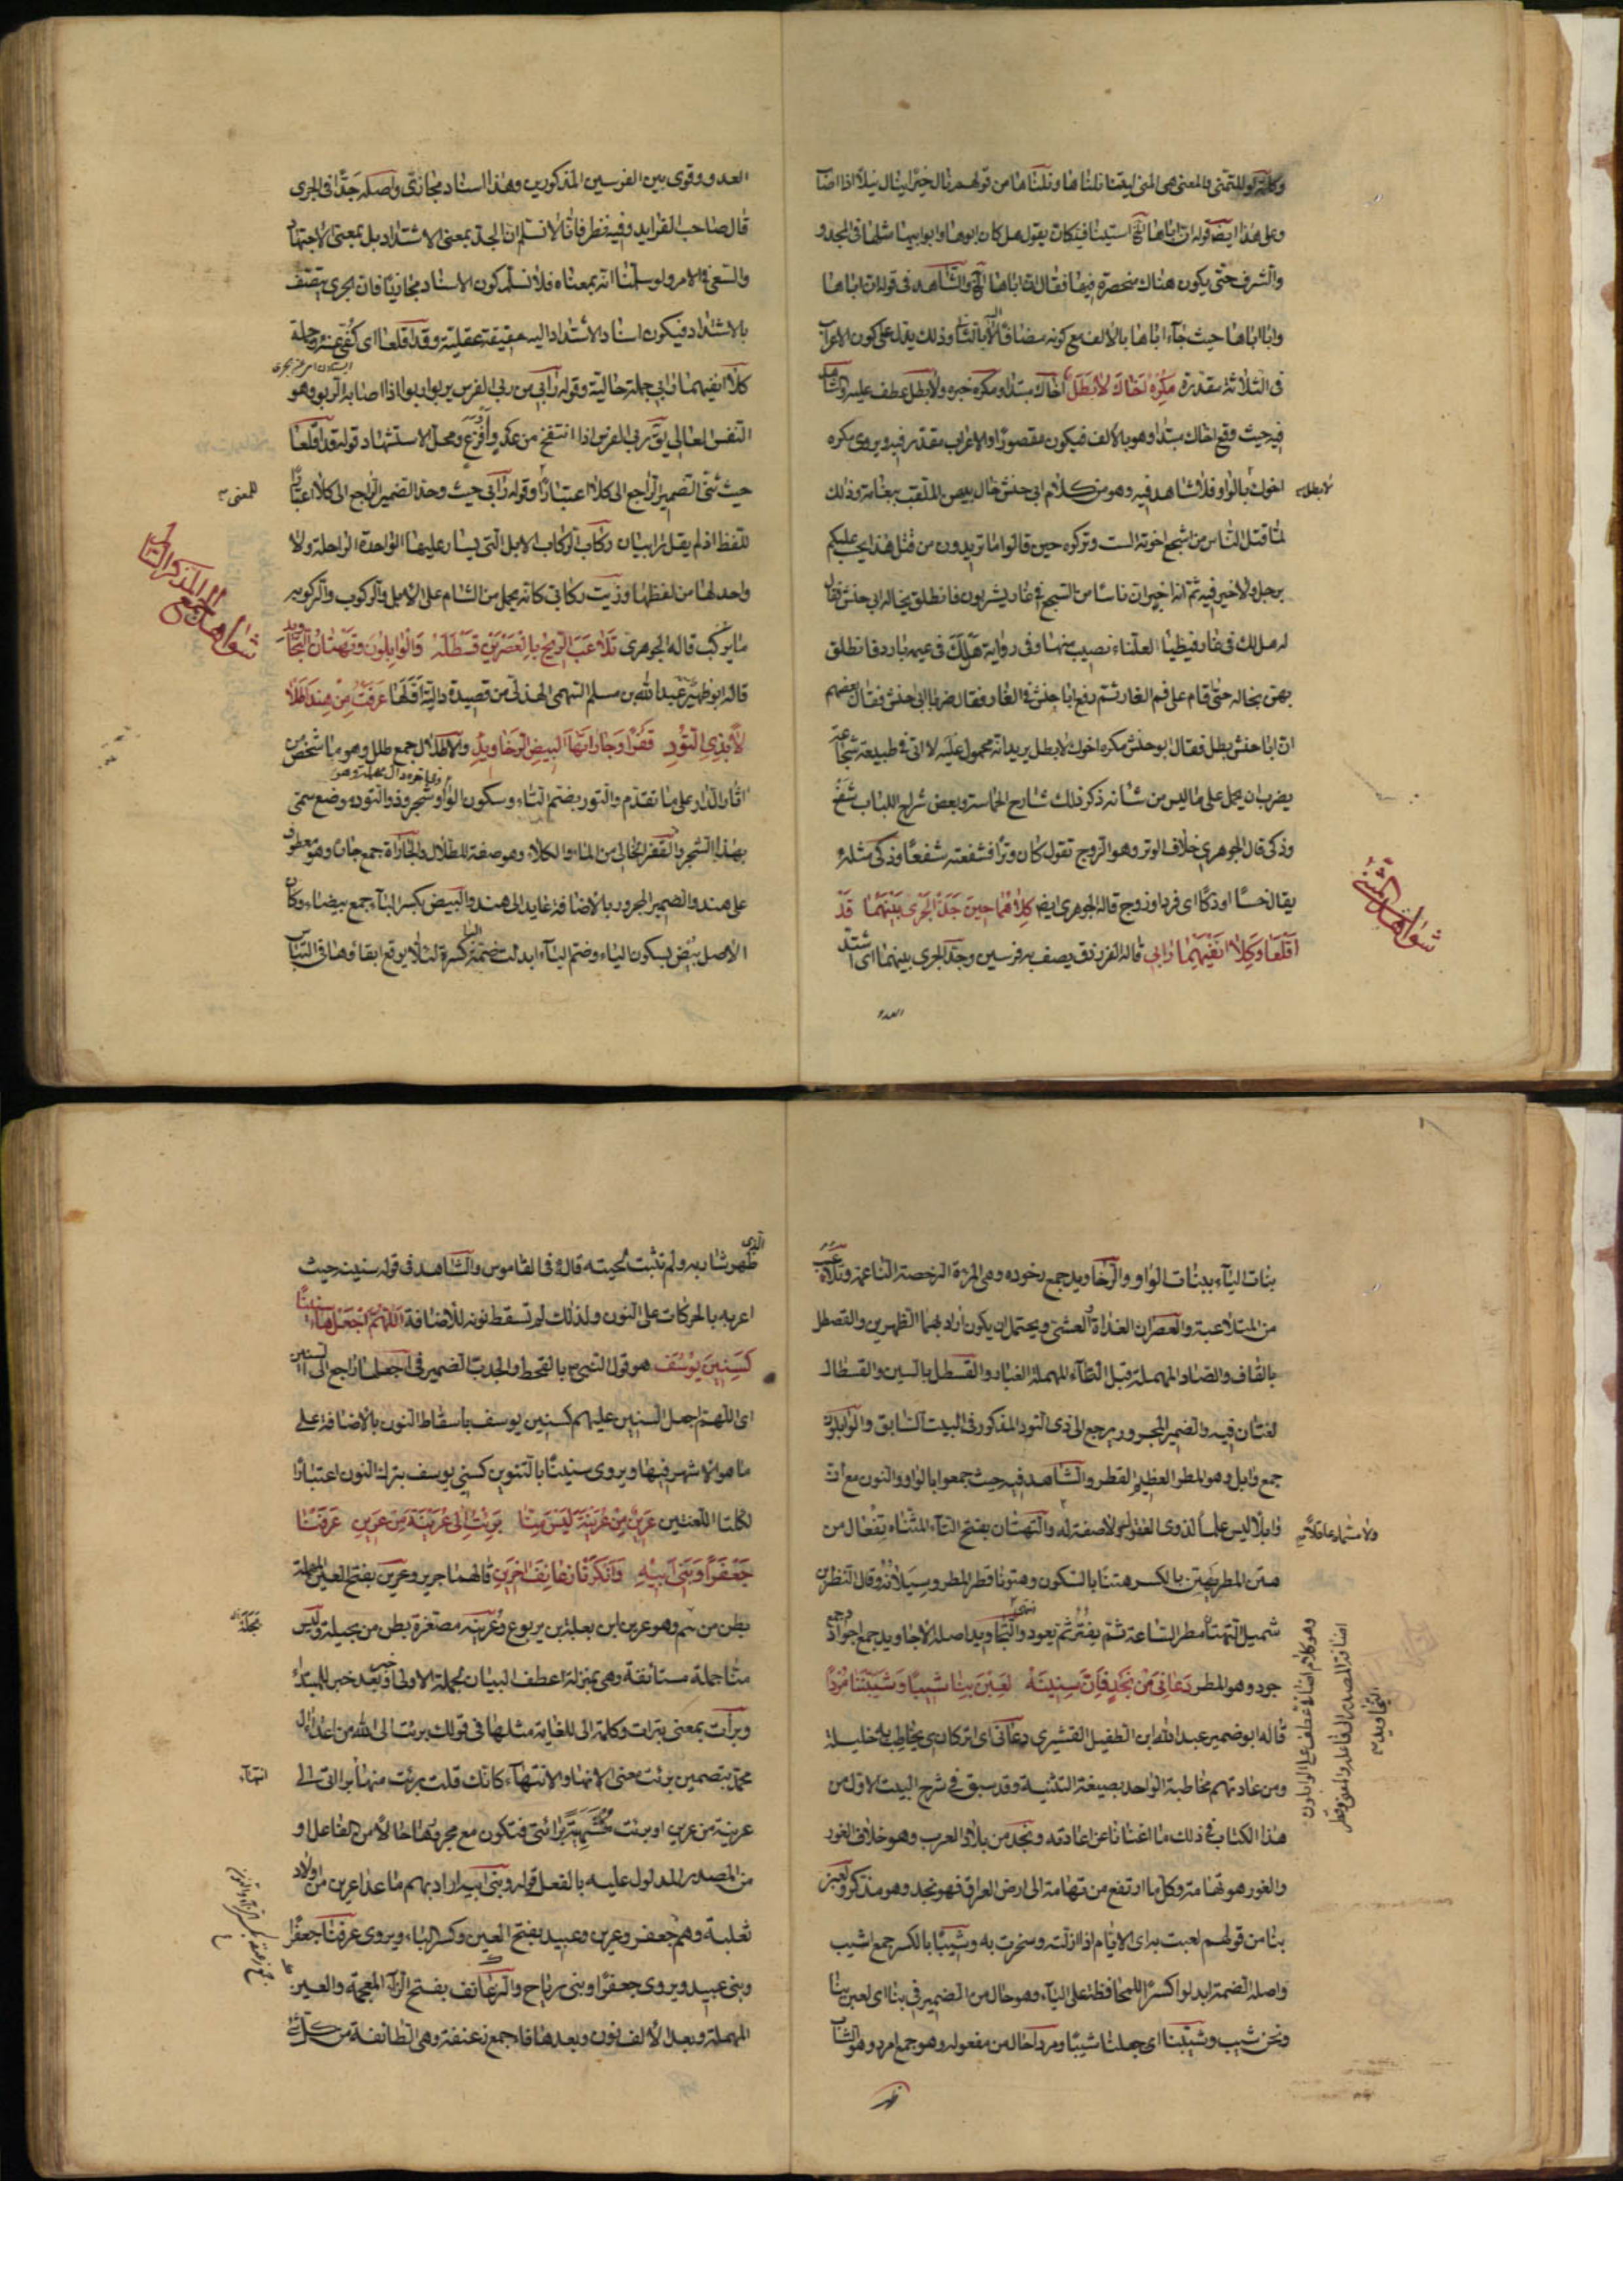 وكلمة لو للتمني والمعنى هي المنى ليتنا نلناها ونلناها من قولهم نال خيرا ينال نيلا اذا اصاب
وعلى هذا ايضا قوله ان اباها الخ استينافية كان يقول هل كان ابوها وابو ابيها مثلها في المجد و
والشرف حتى يكون هناك منحصرة فيها فقال ان اباها الخ والشاهد في قوله ان اباها
وابا اباها حيث جاء اباها بالالف مع كونه مضافا لا بالياء وذلك يدل على كون الاعراب
في الثلاثة مقدرة مكره اخاك لا بطل اخاك مبتدا ومكره خبره ولا بطل عطف عليه والشاهد
فيه حيث وقع اخاك مبتدا وهو بالالف فيكون مقصورا والاعراب مقدر فيه ويروى مكره
اخوك بالواو فلا شاهد فيه وهو من كلام ابي حنش خال بيهس الملقب بنعامة وذلك
لا بطل
لما قتل الناس من اشجع اخوته الست وتركوه حين قالوا ما تريدون من قتل هذا يحسب عليكم
برجل ولا خير فيه ثم انه اخبر ان ناسا من اشجع في غار يشربون فانطلق بخاله ابي حنش فقال
له هل لك في غار فيه ظباء لعلنا نصيب منها وفي رواية هل لك في غنيمة باردة فانطلق
بيهس بخاله حتى قام على فم الغار ثم دفع ابا حنش في الغار فقال ضربا ابا حنش فقال بعضهم
ان ابا حنش بطل فقال ابو حنش مكره اخوك لا بطل يريد انه محمول عليه لا ان في طبيعته شجاعة
يضرب لمن يحمل على ما ليس من شانه ذكر ذلك شارح الحماسة وبعض شراح اللباب شفع
وذكى قال الجوهري خلاف الوتر وهو الزوج تقول كان وترا فشفعته شفعا وذكى مثله
يقال خسا او ذكا اى فردا وزوج قاله الجوهري ايضا كلاهما حين جد الجرى بينهما قد
اقلعا وكلا انفيهما رابي قاله الفرزدق يصف به فرسين وجد الجرى بينهما اى اشتد
شواهد المثنى
العدو
العدو وقوى بين الفرسين المذكورين وهذا اسناد مجازى واصله جدا في الجرى
قال صاحب الفرايد وفيه نظر فانا لا نسلم ان الجد بمعنى الاشتداد بل بمعنى الاجتهاد
والسعى في الامر ولو سلمنا انه بمعناه فلا نسلم كون الاسناد مجازيا فان الجرى يتصف
بالاشتداد فيكون اسناد الاشتداد اليه حقيقة عقلية وقد اقلعا اى كفا عنه وجملة
كلا انفيهما رابي جملة حالية وقوله رابي من ربى الفرس يربو اربوا اذا اصابه الربو وهو
النفس العالي يق ربى الفرس اذا انتفخ من عدو او فزع ومحل الاستشهاد قوله قد اقلعا
حيث ثنى الضمير الراجع الى كلا اعتبارا وقوله رابي حيث وحد الضمير الراجع الى كلا اعتبارا
للمعنى
للفظ اذ لم يقل رابيان ركاب الركاب الابل التي يسار عليها الواحدة الراحلة ولا
واحد لها من لفظها وزيت ركابي كانه يحمل من الشام على الابل والركوب والركوبة
ما يركب قاله الجوهري تلاعب الريح بالعصرين قسطله والوابلون وتهتان التجاويد
شواهد الجمع المذكر السالم
قاله ابو ظهير عبد الله بن مسلم التهمي الهذلي من قصيدة دالية اولها عرفت من هند اطلالا
لا بذي التود قفرا وجاراتها البيض الرخاويد والاطلال جمع طلل وهو ما شخص من
اثار الدار على ما تقدم والتود بضم التاء وسكون الواو شجر وذو التود موضع سمى
بهذا الشجر والقفر الخالي من الماء والكلاء وهو صفة للطلال والجارات جمع جارة وهو معطوف
على هند والضمير المجرور بالاضافة عايد الى هند والبيض بكسر الباء جمع بيضاء وكان
الاصل بيض بسكون الياء وضم الباء ابدلت ضمته كسرة لئلا يوقع ابقاؤها في التباس
بنات الياء ببنات الواو والرخاويد جمع رخودة وهي المرءة الرخصة الناعمة وتلاعب
من الملاعبة والعصران الغداة والعشي ويحتمل ان يكون اراد بهما الظهرين والقصطل
بالقاف والصاد المهملة قبل الطاء المهملة الغبار والقسطل بالسين والقسطال
لغتان فيه والضمير المجرور يرجع الى ذى التود المذكور في البيت السابق والوابلون
جمع وابل وهو المطر العظيم القطر والشاهد فيه حيث جمعوا بالواو والنون مع ان
وابلا ليس علما لذوى العقول ولا صفة له والتهتان بفتح التاء المثناة تفعال من
هتن المطر يهتن بالكسر هتنا بالسكون وهتونا قطر المطر وسيلانه وقال النضر بن
شميل التهتان مطر الساعة ثم يفتر ثم يعود والتجاويد اصله الاجاويد جمع اجواد
جود وهو المطر دعاني من نجد فان سنينه لعبن بنا شيبا وشيبننا مردا
قاله ابو ضمير عبد الله ابن الطفيل القشيري دعاني اى اتركاني يخاطب به خليله
ومن عادتهم مخاطبة الواحد بصيغة التثنية وقد سبق في شرح البيت الاول من
هذا الكتاب في ذلك ما اغنانا عن اعادته ونجد من بلاد العرب وهو خلاف الغور
والغور هو تهامة وكل ما ارتفع من تهامة الى ارض العراق فهو نجد وهو مذكر ولعبن
بنا من قولهم لعبت به اى الايام اذا ازلته وسخرت به وشيبا بالكسر جمع اشيب
واصله الضمة ابدلوا كسرا للمحافظة على الياء وهو حال من الضمير في بنا اى لعبن بنا
ونحن شيب وشيبننا اى جعلتنا شيبا ومردا حال من مفعوله وهو جمع امرد وهو الشاب
الذى
ظهر شاربه ولم تثبت لحيته قاله في القاموس والشاهد في قوله سنينه حيث
اعربه بالحركات على النون ولذلك لم تسقط نونه للاضافة اللهم اجعلها سنينا
كسنين يوسف هو قول النبي ص بالقحط والجدب الضمير في اجعلها راجع الى السنين
اى اللهم اجعل السنين عليهم كسنين يوسف باسقاط النون بالاضافة على
ما هو الاشهر فيها ويروى سنينا بالتنوين كسني يوسف بترك النون اعتبارا
لكلتا اللغتين عرين من عرينة ليس منا برئت الى عرينة من عرين عرفنا
جعفرا وبني ابيه وانكرنا زعانف اخرين قالهما جرير وعرين بفتح العين المهملة
بطن من تميم وهو عرين ابن ثعلبة بن يربوع وعرينه مصغرة بطن من بجيلة وليس
منا جملة مستانفة وهي بمنزلة اعطف البيان لجملة الاولى او بعد خبر للمبتدا
وبرات بمعنى تبرات وكلمة الى للغاية مثلها في قولك برئت الى الله من اعداء ال
محمد بتضمين برئت معنى الانهاء والانتهاء كانك قلت برئت منها براتى الى
انتهاء
عرينة من عرين او برئت منتهية برائتي فتكون مع مجرورها حالا من الفاعل او
من المصدر المدلول عليه بالفعل قوله وبني ابيه اراد بهم ما عدا عرين من اولاد
ثعلبة وهم جعفر وعرين وعبيد بفتح العين وكسر الباء ويروى عرفنا جعفرا
وبني عبيد ويروى جعفرا وبني رياح والزعانف بفتح الزاء المعجمة والعين
المهملة وبعد الالف نون وبعدها فاء جمع زعنفة وهي الطائفة من كل شئ